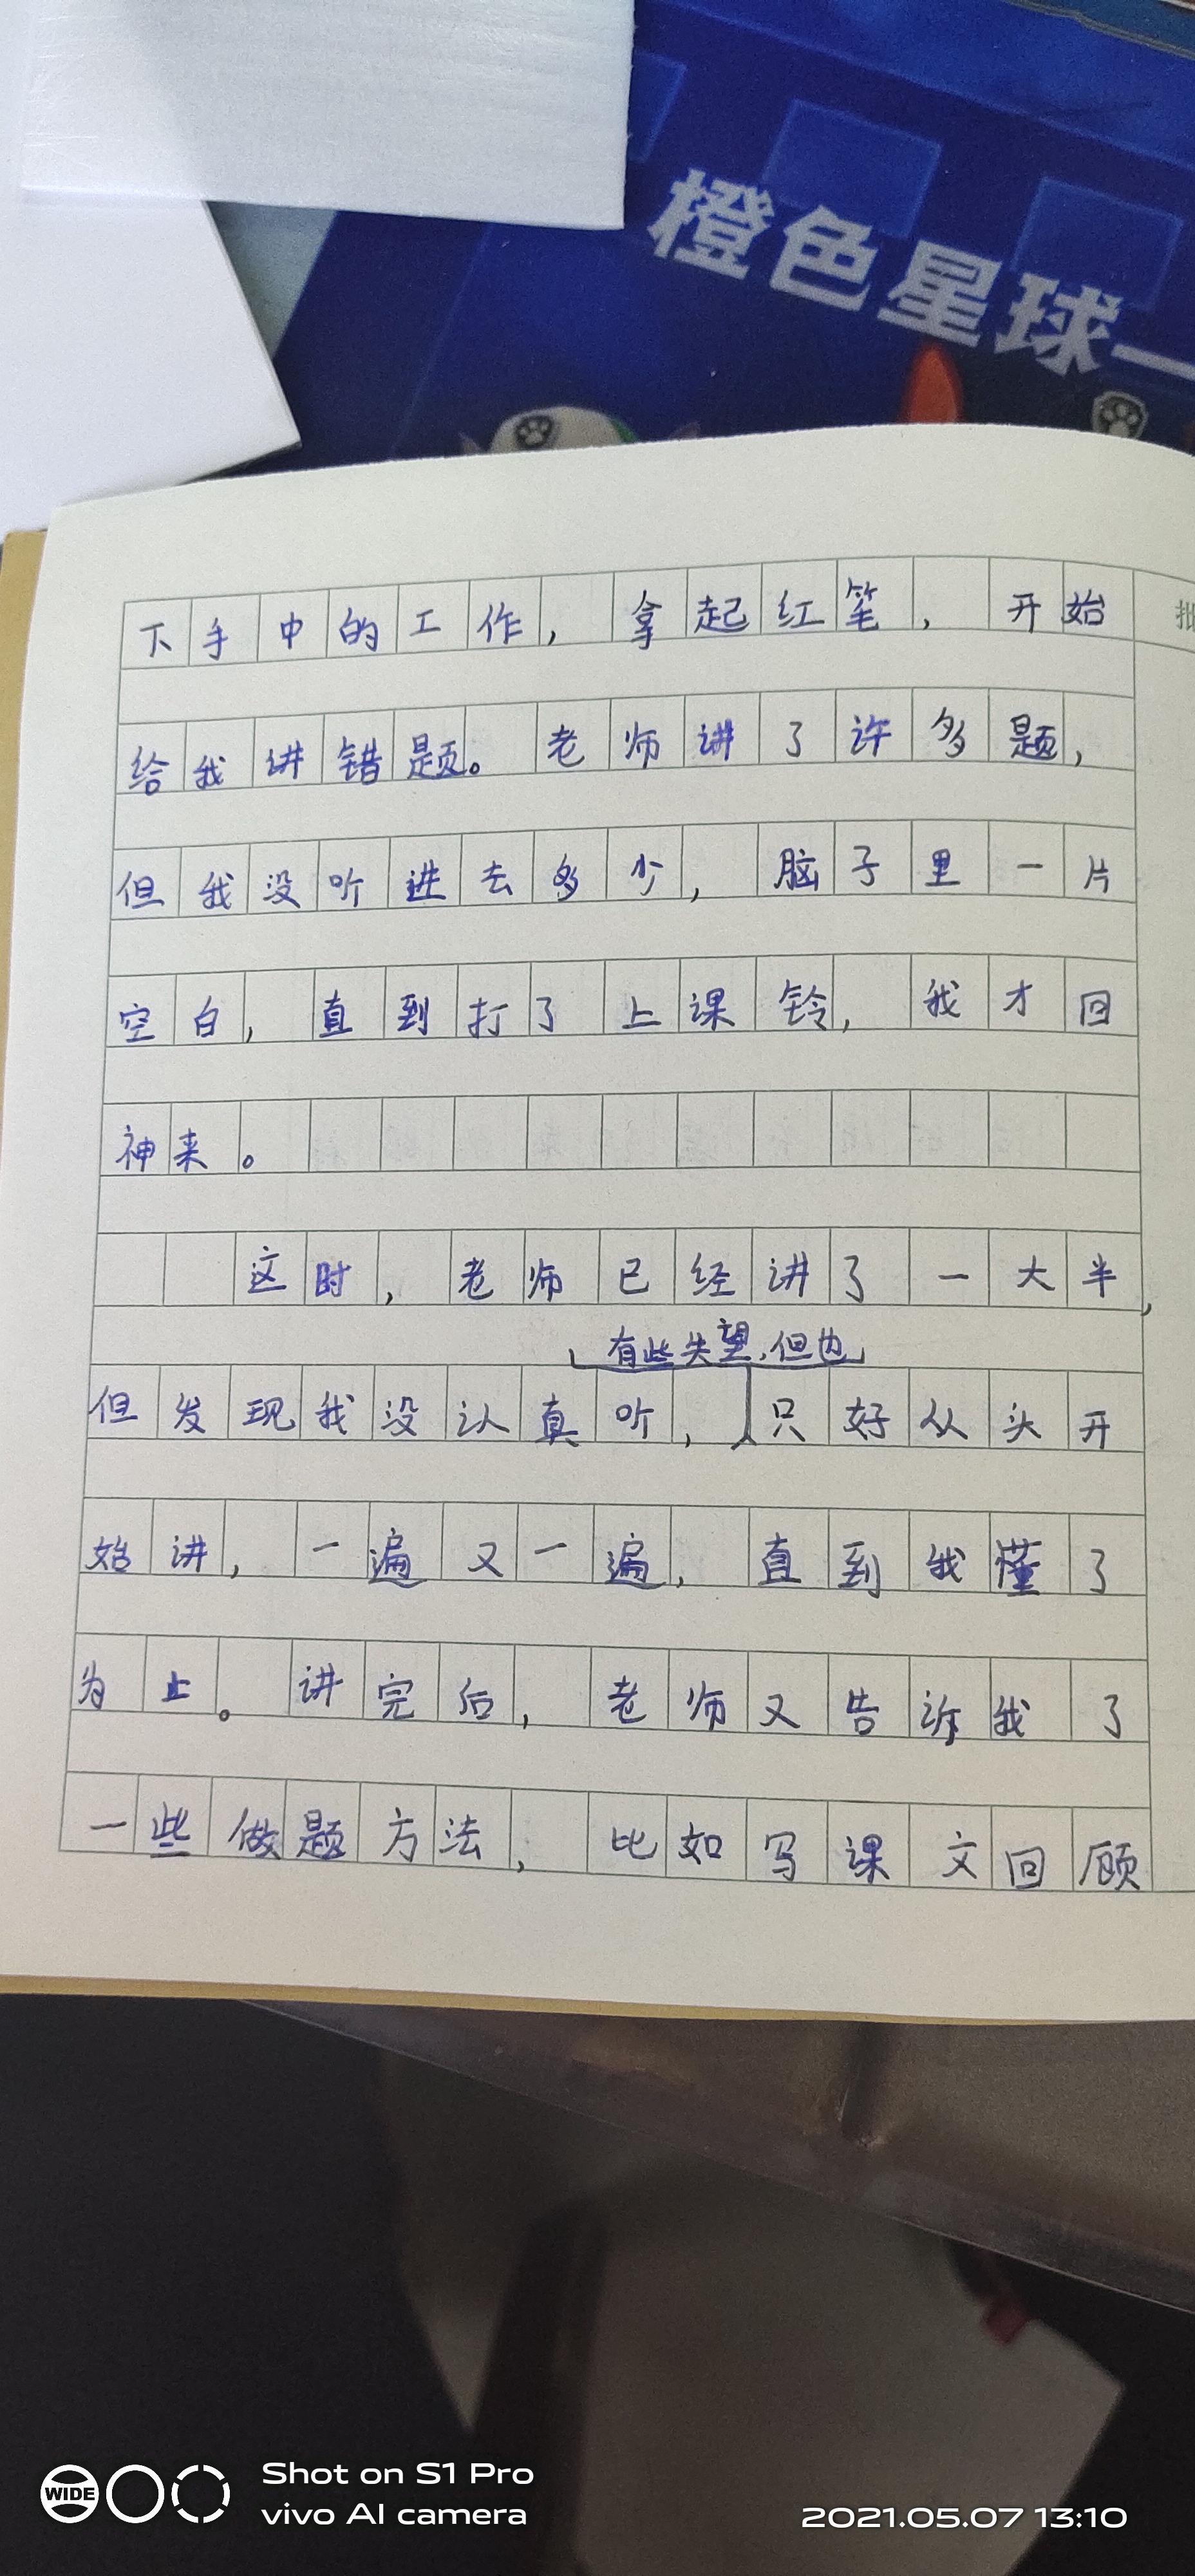 橙色星球一
批
下手中的工作，拿起红笔，开始
给我讲错题。老师讲了许多题，
但我没听进去多少，脑子里一片
空白，直到打了上课铃，我才回
神来。
这时，老师已经讲了一大半，
有些失望，但也
但发现我没认真听，只好从头开
始讲，一遍又一遍，直到我懂了
为止。讲完后，老师又告诉我了
一些做题方法，比如写课文回顾
WIDE
Shot on S1 Pro
vivo AI camera
2021.05.07 13:10